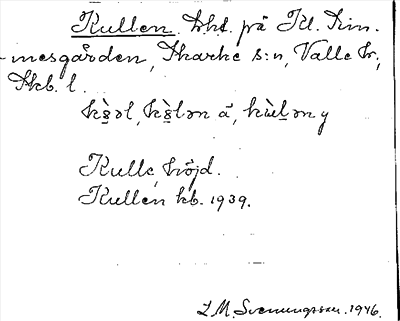 Kullen. trkt. på Kl. Rim-
mesgården, Skarke s:n, Valle hd;
Skb. l.
kùl̥ən y
Kulle, höjd.
Kullen kb. 1939.
L. M. Svenungsson. 1946.